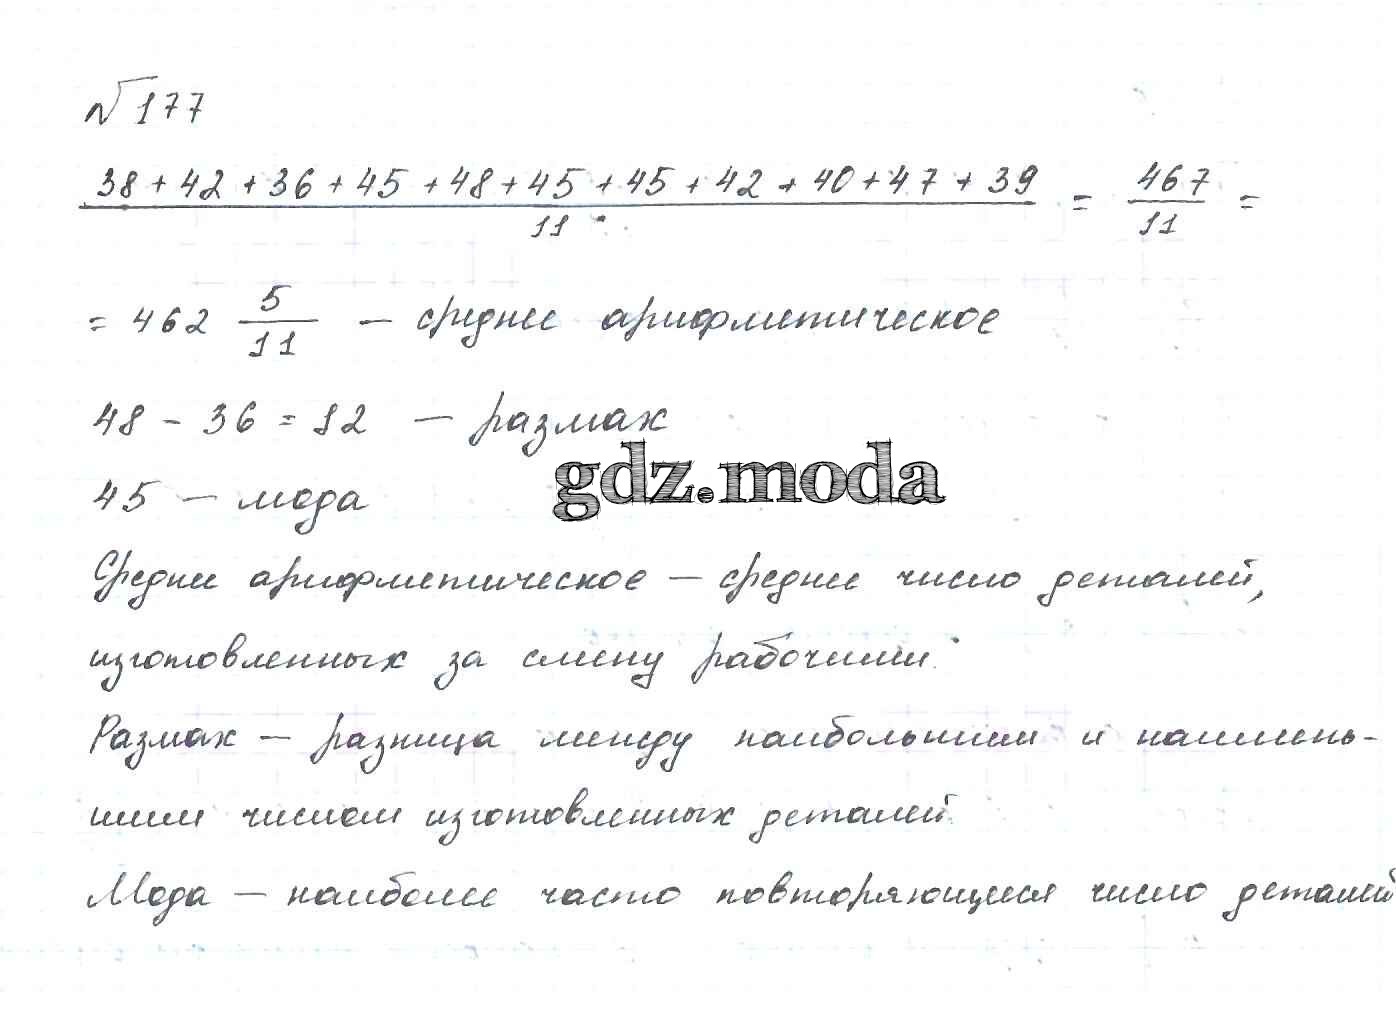 №177
38 + 42 + 36 + 45 + 48 + 45 + 45 + 42 + 40 + 47 + 39 / 11 = 467 / 11 =
= 462 5/11 — среднее арифметическое
48 - 36 = 12 — размах
gdz.moda
45 — мода
Среднее арифметическое — среднее число деталей,
изготовленных за смену рабочими.
Размах — разница между наибольшим и наимень-
шим числом изготовленных деталей.
Мода — наиболее часто повторяющееся число деталей